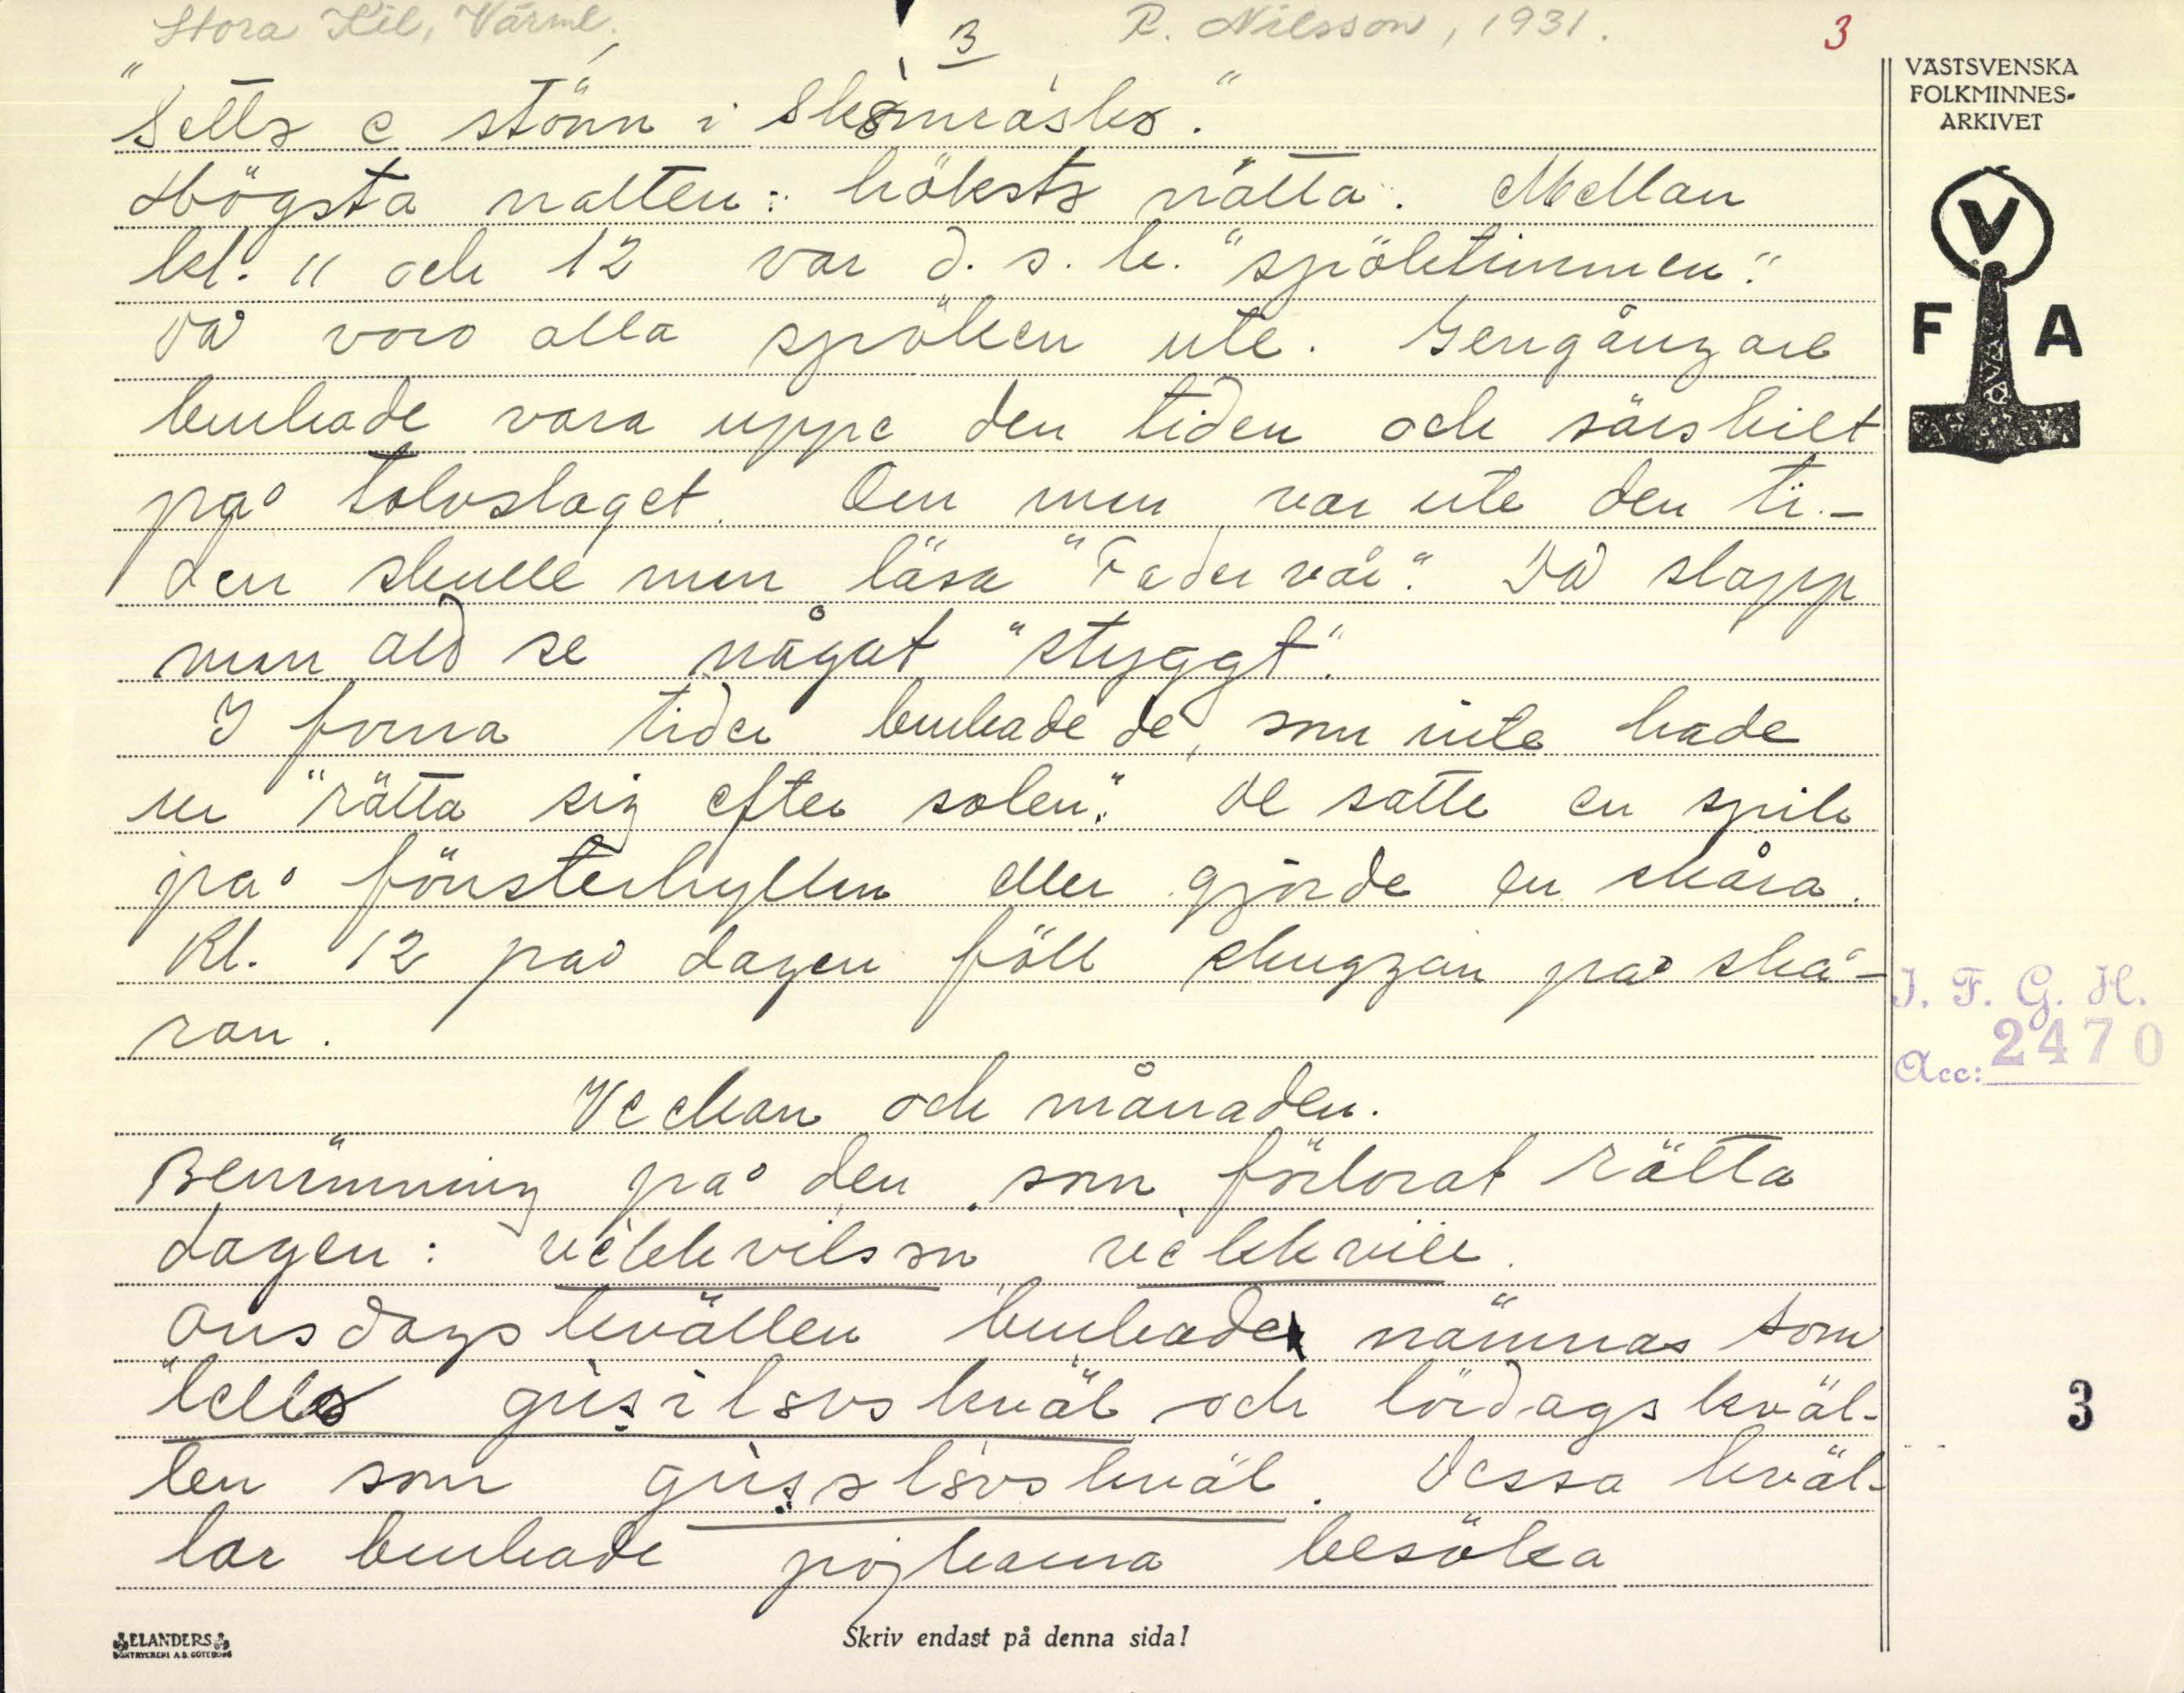 Stora Kil, Värml.
3
R. Nilsson, 1931.
3
VÄSTSVENSKA
FOLKMINNES-
ARKIVET
V
F A
"Setta e stönn i
Högsta natten: höksta nätta. Mellan
kl. 11 och 12 var d. s. k. "spöktimmen."
Då voro alla spöken ute. Gengångare
brukade vara uppe den tiden och särskilt
på tolvslaget. Om mun var ute den ti-
den skulle mun läsa "Fader vår." Då slapp
mun att se något "styggt".
I forna tider brukade de, som inte hade
ur "rätta sig efter solen." De satte en spik
på fönsterhyllan eller gjorde en skåra.
Kl. 12 på dagen föll skuggan på skå-
ran.
Veckan och månaden.
Benämning på den som förlorat rätta
dagen: vèkkvilsn vèkkvill.
Onsdagskvällen brukade nämnas som
"lella gùsilørskväl och lördagskväl-
len som gùsslørskväl. Dessa kväl-
lar brukade pojkarna besöka
J. F. G. H.
Acc: 2470
3
ELANDERS
BOKTRYCKERI A.B. GÖTEBORG
Skriv endast på denna sida!